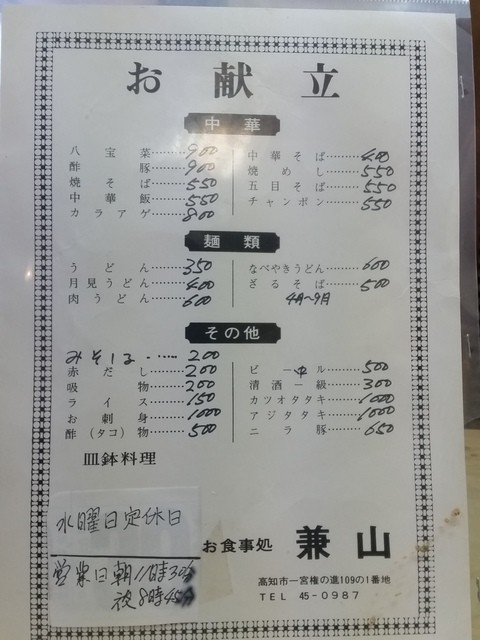 お献立
中華
八宝菜………900
酢豚………900
焼そば………550
中華飯………550
カラアゲ………800
中華そば………400
焼めし………550
五目そば………550
チャンポン………550
麺類
うどん………350
月見うどん………400
肉うどん………600
なべやきうどん………600
ざるそば………500
4月〜9月
その他
みそしる………200
赤だし………200
吸物………200
ライス………150
お刺身………1000
酢(タコ)物………500
ビール 中………500
清酒一級………300
カツオタタキ………1000
アジタタキ………1000
ニラ豚………650
皿鉢料理
水曜日定休日
営業日朝11時30分
夜8時45分
お食事処 兼山
高知市一宮権の進109の1番地
TEL 45-0987